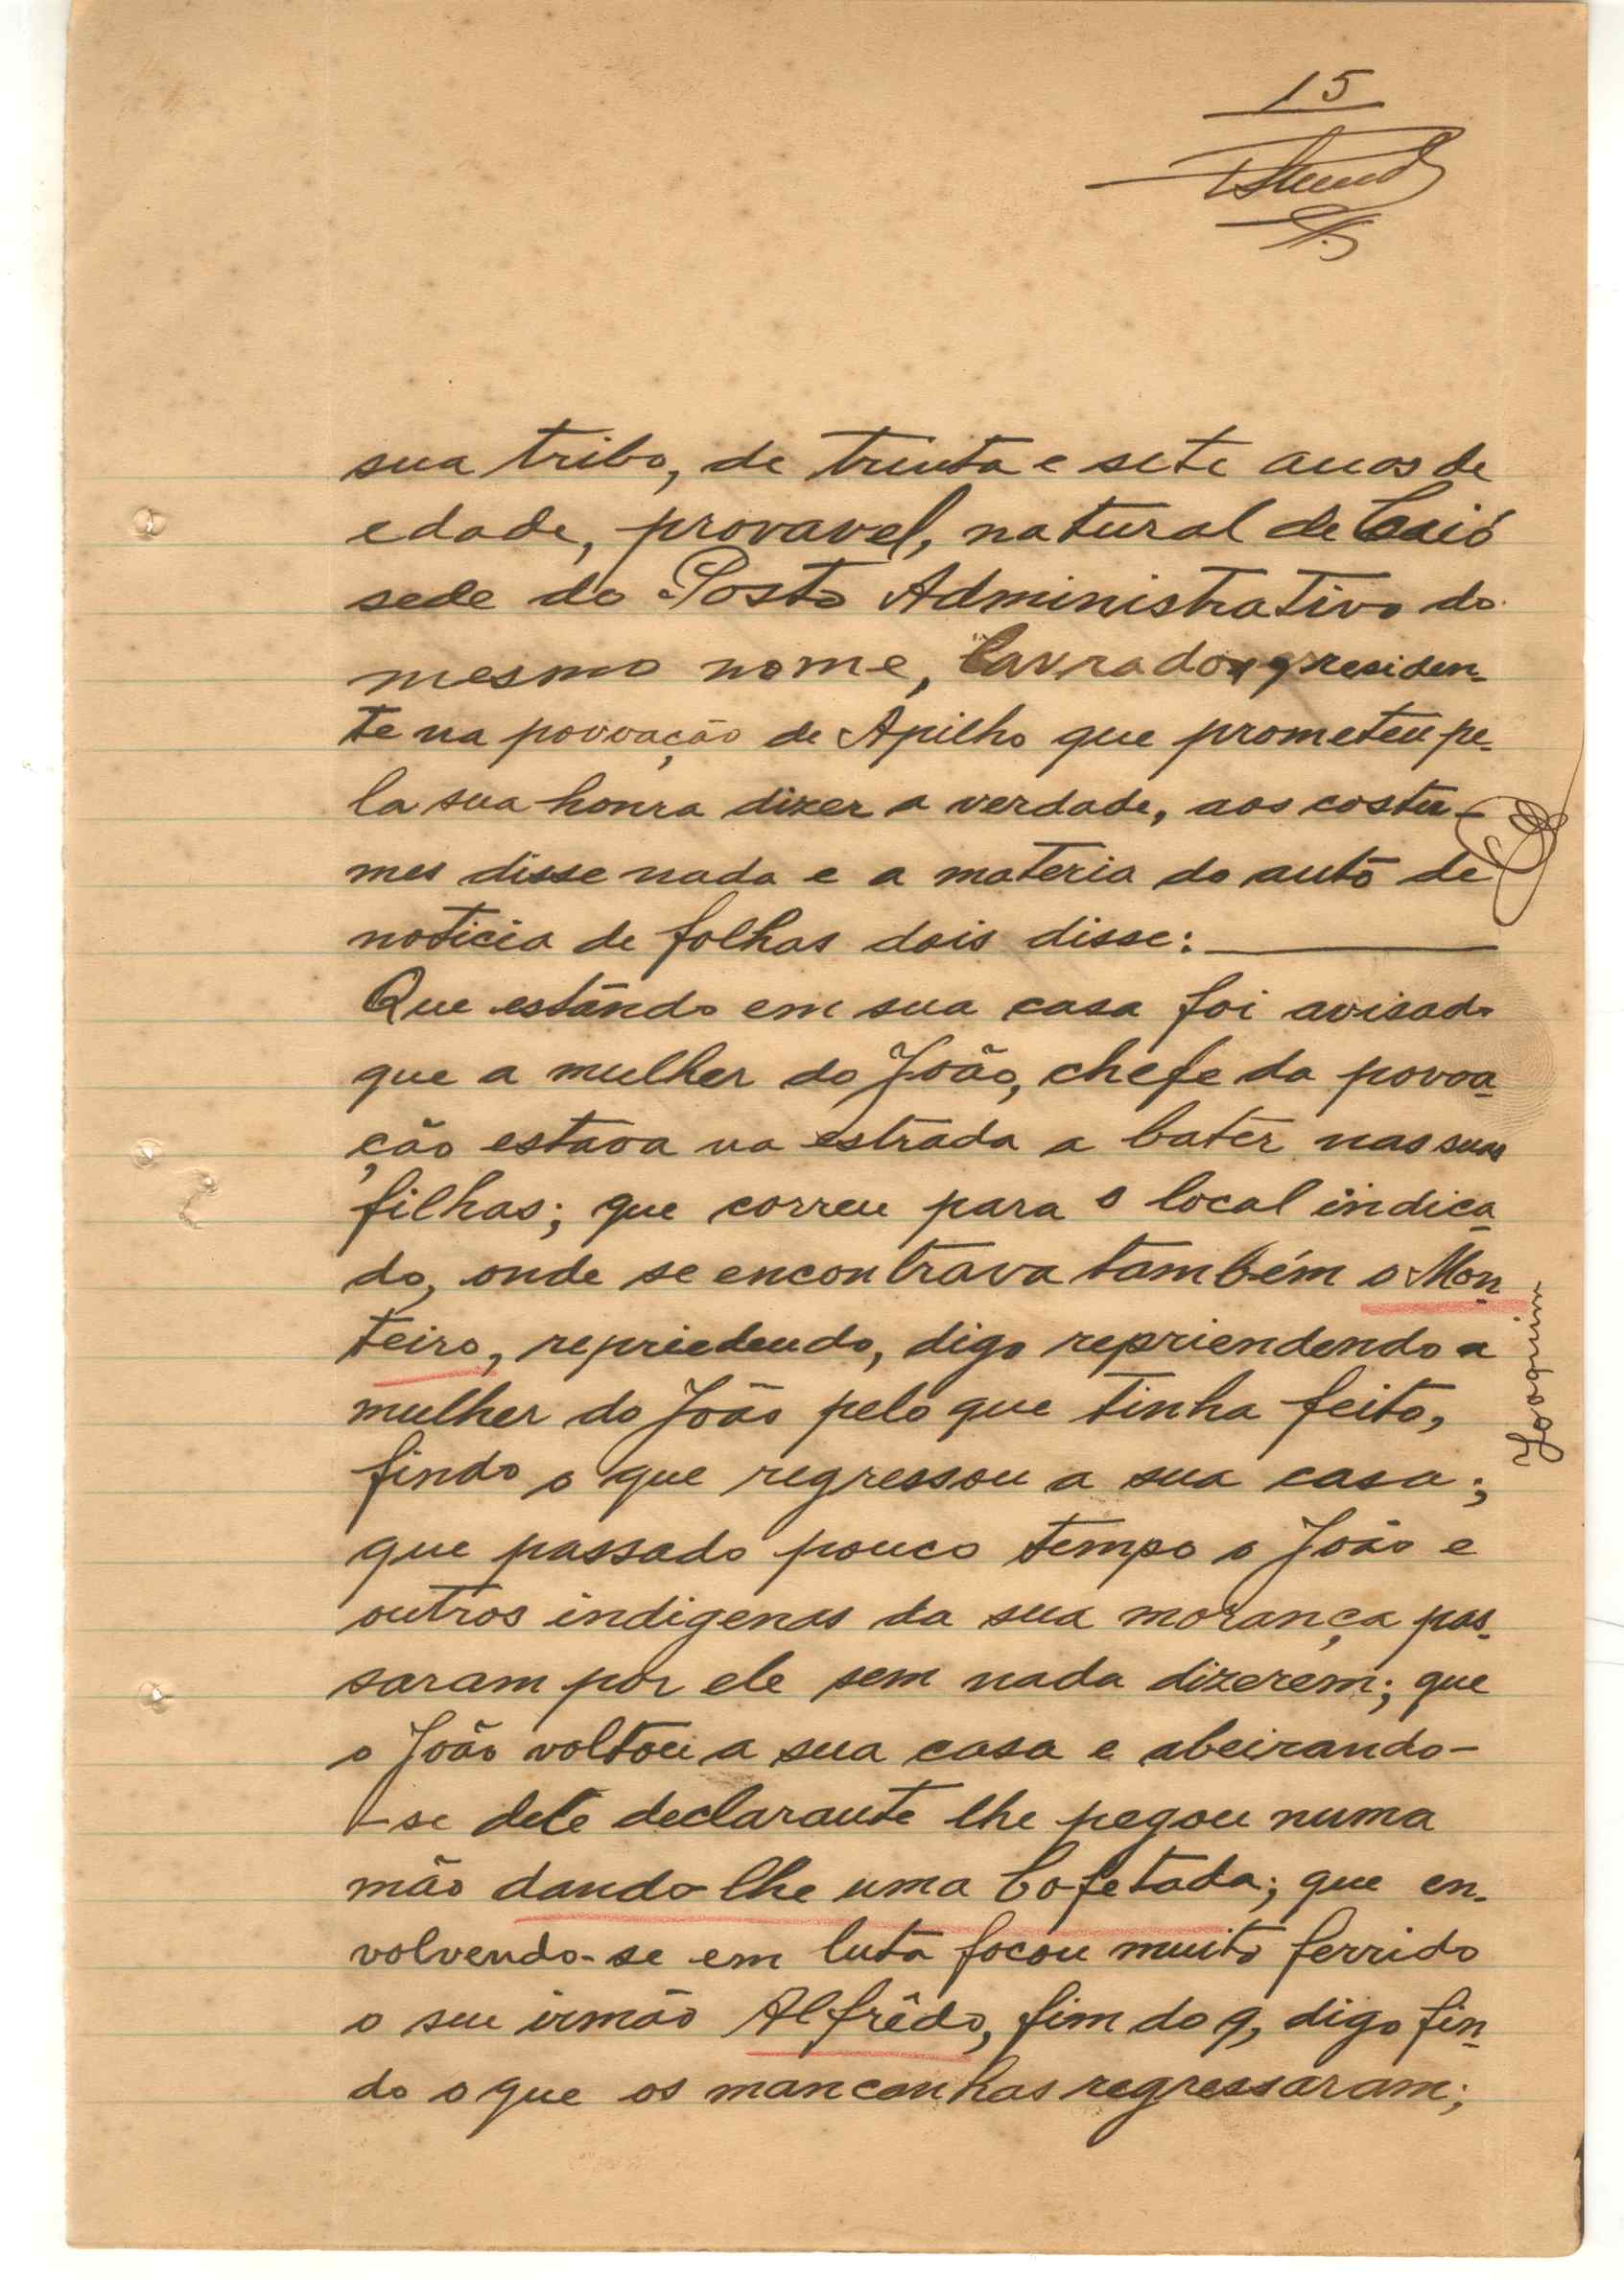 15
sua tribo, de trinta e sete anos de
edade, provavel, natural de Caió
sede do Posto Administrativo do
mesmo nome, lavrador, residen-
te na povoação de Apilho que prometeu pe-
la sua honra dizer a verdade, aos costu-
mes disse nada e a materia do auto de
noticia de folhas dois disse:
Que estando em sua casa foi avisado
que a mulher do João, chefe da povoa-
ção estava na estrada a bater nas suas
filhas; que correu para o local indica-
do, onde se encontrava também o Mon-
teiro, repriedendo, digo repriendendo a
mulher do João pelo que tinha feito,
findo o que regressou a sua casa;
que passado pouco tempo o João e
outros indigenas da sua morança pas-
saram por ele sem nada dizerem; que
o João voltou a sua casa e abeirando-
-se dele declarante lhe pegou numa
mão dando-lhe uma bofetada; que en-
volvendo-se em luta focou muito ferrido
o seu irmão Alfrêdo, fim do q, digo fin-
do o que os manconhas regressaram;
Joaquim